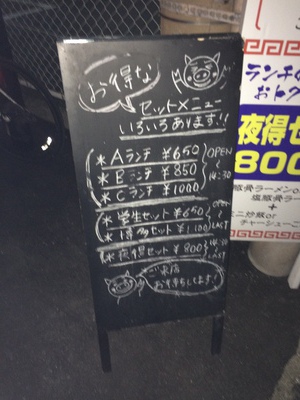 お得な
セットメニュー
いろいろあります!!
*Aランチ ¥650
*Bランチ ¥850
*Cランチ ¥1000
OPEN
14:30
*学生セット ¥650
*博多セット ¥1,100
OPEN
LAST
*夜得セット ¥800
LAST
ご来店
お待ちしてます!
ランチ
おトク
夜得セ
800
豚骨ラーメン
塩豚骨ラーメ
+
ミニ炒飯or
チャーシュー